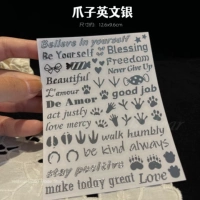 爪子英文银
Believe in yourself
Be Yourself Blessing
Freedom
Never Give Up
Beautiful
L'amour good job
De Amor
act justly
love mercy
walk humbly
be kind always
stay positive
make today great Love